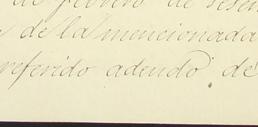 de febrero de
de la mencionada
referido adendo. de